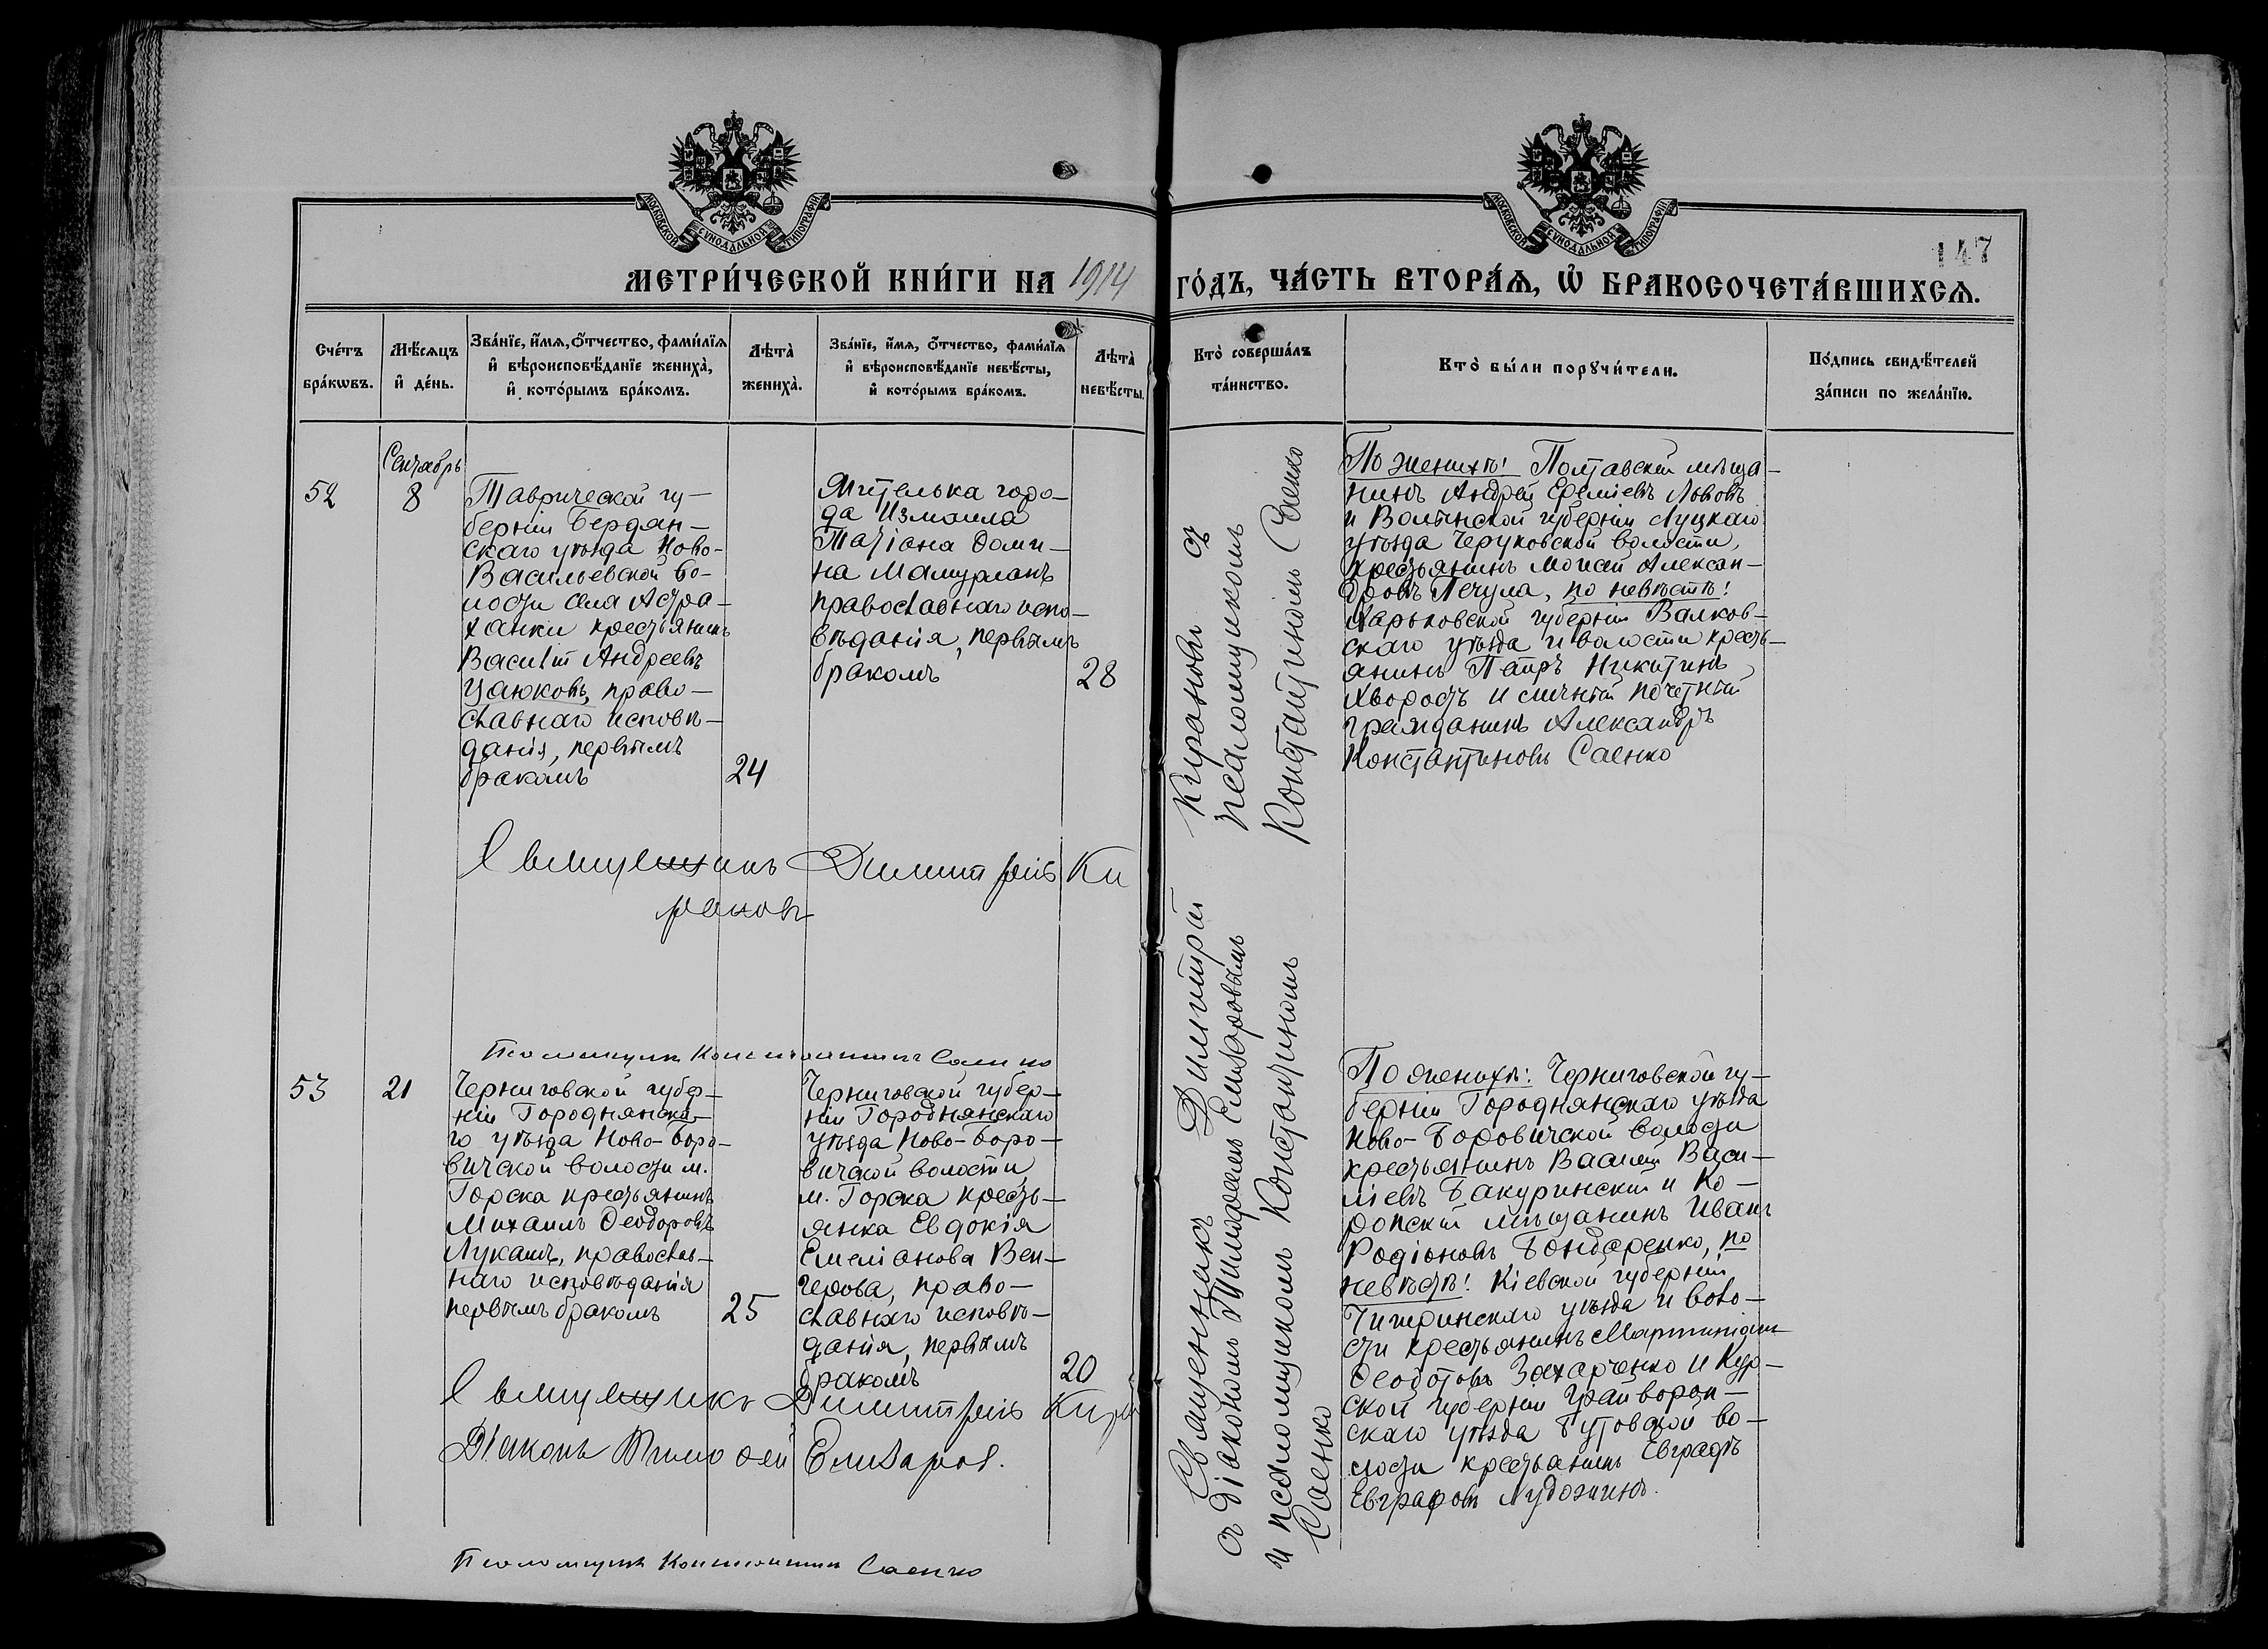 МОСКОВСКОЙ СѴНОДАЛЬНОЙ ТИПОГРАФІИ
МОСКОВСКОЙ СѴНОДАЛЬНОЙ ТИПОГРАФІИ
147
МЕТРИ́ЧЕСКОЙ КНИ́ГИ НА 1914 ГО́ДЪ, ЧА́СТЬ ВТОРА́Ѧ, Ѡ҆ БРАКОСОЧЕТА́ВШИХСѦ.
Сче́тъ
бра́кѡвъ.
Мѣ́сѧцъ
и҆ де́нь.
Зва́нїе, и҆́мѧ, ѻ҆́тчество, фами́лїѧ
и҆ вѣроисповѣ́данїе жениха̀,
и҆ кото́рымъ бра́комъ.
Лѣта̀
жениха̀.
Зва́нїе, и҆́мѧ, ѻ҆́тчество, фами́лїѧ
и҆ вѣроисповѣ́данїе невѣ́сты,
и҆ кото́рымъ бра́комъ.
Лѣта̀
невѣ́сты.
Кто̀ соверша́лъ
та́инство.
Кто̀ бы́ли порꙋчи́тели.
По́дпись свидѣ́телей
за́писи по жела́нїю.
52
Сентябрь
8
Таврической гу-
берніи Бердян-
скаго уѣзда Ново-
Васильевской во-
лости села Астра-
ханки крестьянинъ
Василій Андреевъ
Цаюковъ, право-
славнаго исповѣ-
данія, первымъ
бракомъ
24
Жителька горо-
да Измаила
Татіана Доми-
на Мамурланъ
православнаго испо-
вѣданія, первымъ
бракомъ
28
Священникъ Димитрій Ки
рановъ
Псаломщикъ Константинъ Саенко
Священникъ Димитрій Кирановъ съ
съ діакономъ Тимофеемъ Елизаровымъ псаломщикомъ
и псаломщикомъ Константиномъ Константиномъ Саенко
Саенко
По женихѣ: Полтавскій мѣща-
нинъ Андрей Еремиевъ Лововъ
и Волынской губерніи Луцкаго
уѣзда Чаруковской волости,
крестьянинъ Моисей Алексан-
дровъ Печула, по невѣстѣ:
Харьковской губерніи Валков-
скаго уѣзда и волости кресть-
янинъ Петръ Никитинъ
Хворостъ и личный почетный
гражданинъ Александръ
Константиновъ Саенко
53
21
Черниговской губер-
ніи Городнянска-
го уѣзда Ново-Боро-
вичской волости м.
Горска крестьянинъ
Михаилъ Ѳеодоровъ
Лукашъ, православ-
наго исповѣданія
первымъ бракомъ
25
Черниговской губер-
ніи Городнянскаго
уѣзда Ново-Боро-
вичской волости,
м. Горска кресть-
янка Евдокія
Емеліанова Вен-
герова, право-
славнаго исповѣ-
данія, первымъ
бракомъ
20
Священникъ Димитрій Кира
Діаконъ Тимоѳей Елизаровъ.
Псаломщикъ Константинъ Саенко
По женихѣ: Черниговской гу-
берніи Городнянскаго уѣзда
Ново-Боровичской волости
крестьянинъ Василій Васи-
ліевъ Бакуринскій и Ко-
ропскій мѣщанинъ Иванъ
Родіоновъ Бондаренко, по
невѣстѣ: Кіевской губерніи
Чигиринскаго уѣзда и воло-
сти крестьянинъ
Ѳеодотовъ Захарченко и Кур-
ской губерніи Грайворон-
скаго уѣзда Бутовской во-
лости крестьянинъ Евграфъ
Евграфовъ Лудожинъ.